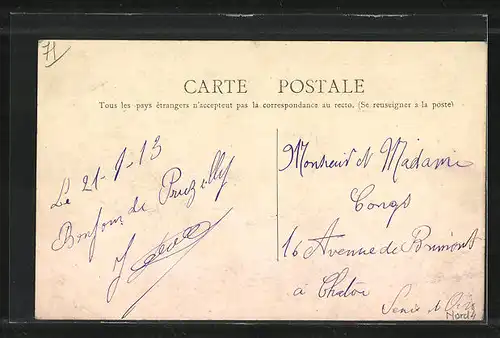 71
CARTE POSTALE
Tous les pays étrangers n'acceptent pas la correspondance au recto. (Se renseigner à la poste)
Le 21-9-13
Bonjour de Pruzilly
Monsieur et Madame
Congs
16 Avenue de Brimont
à Chatou
Seine et Oise
Nord4